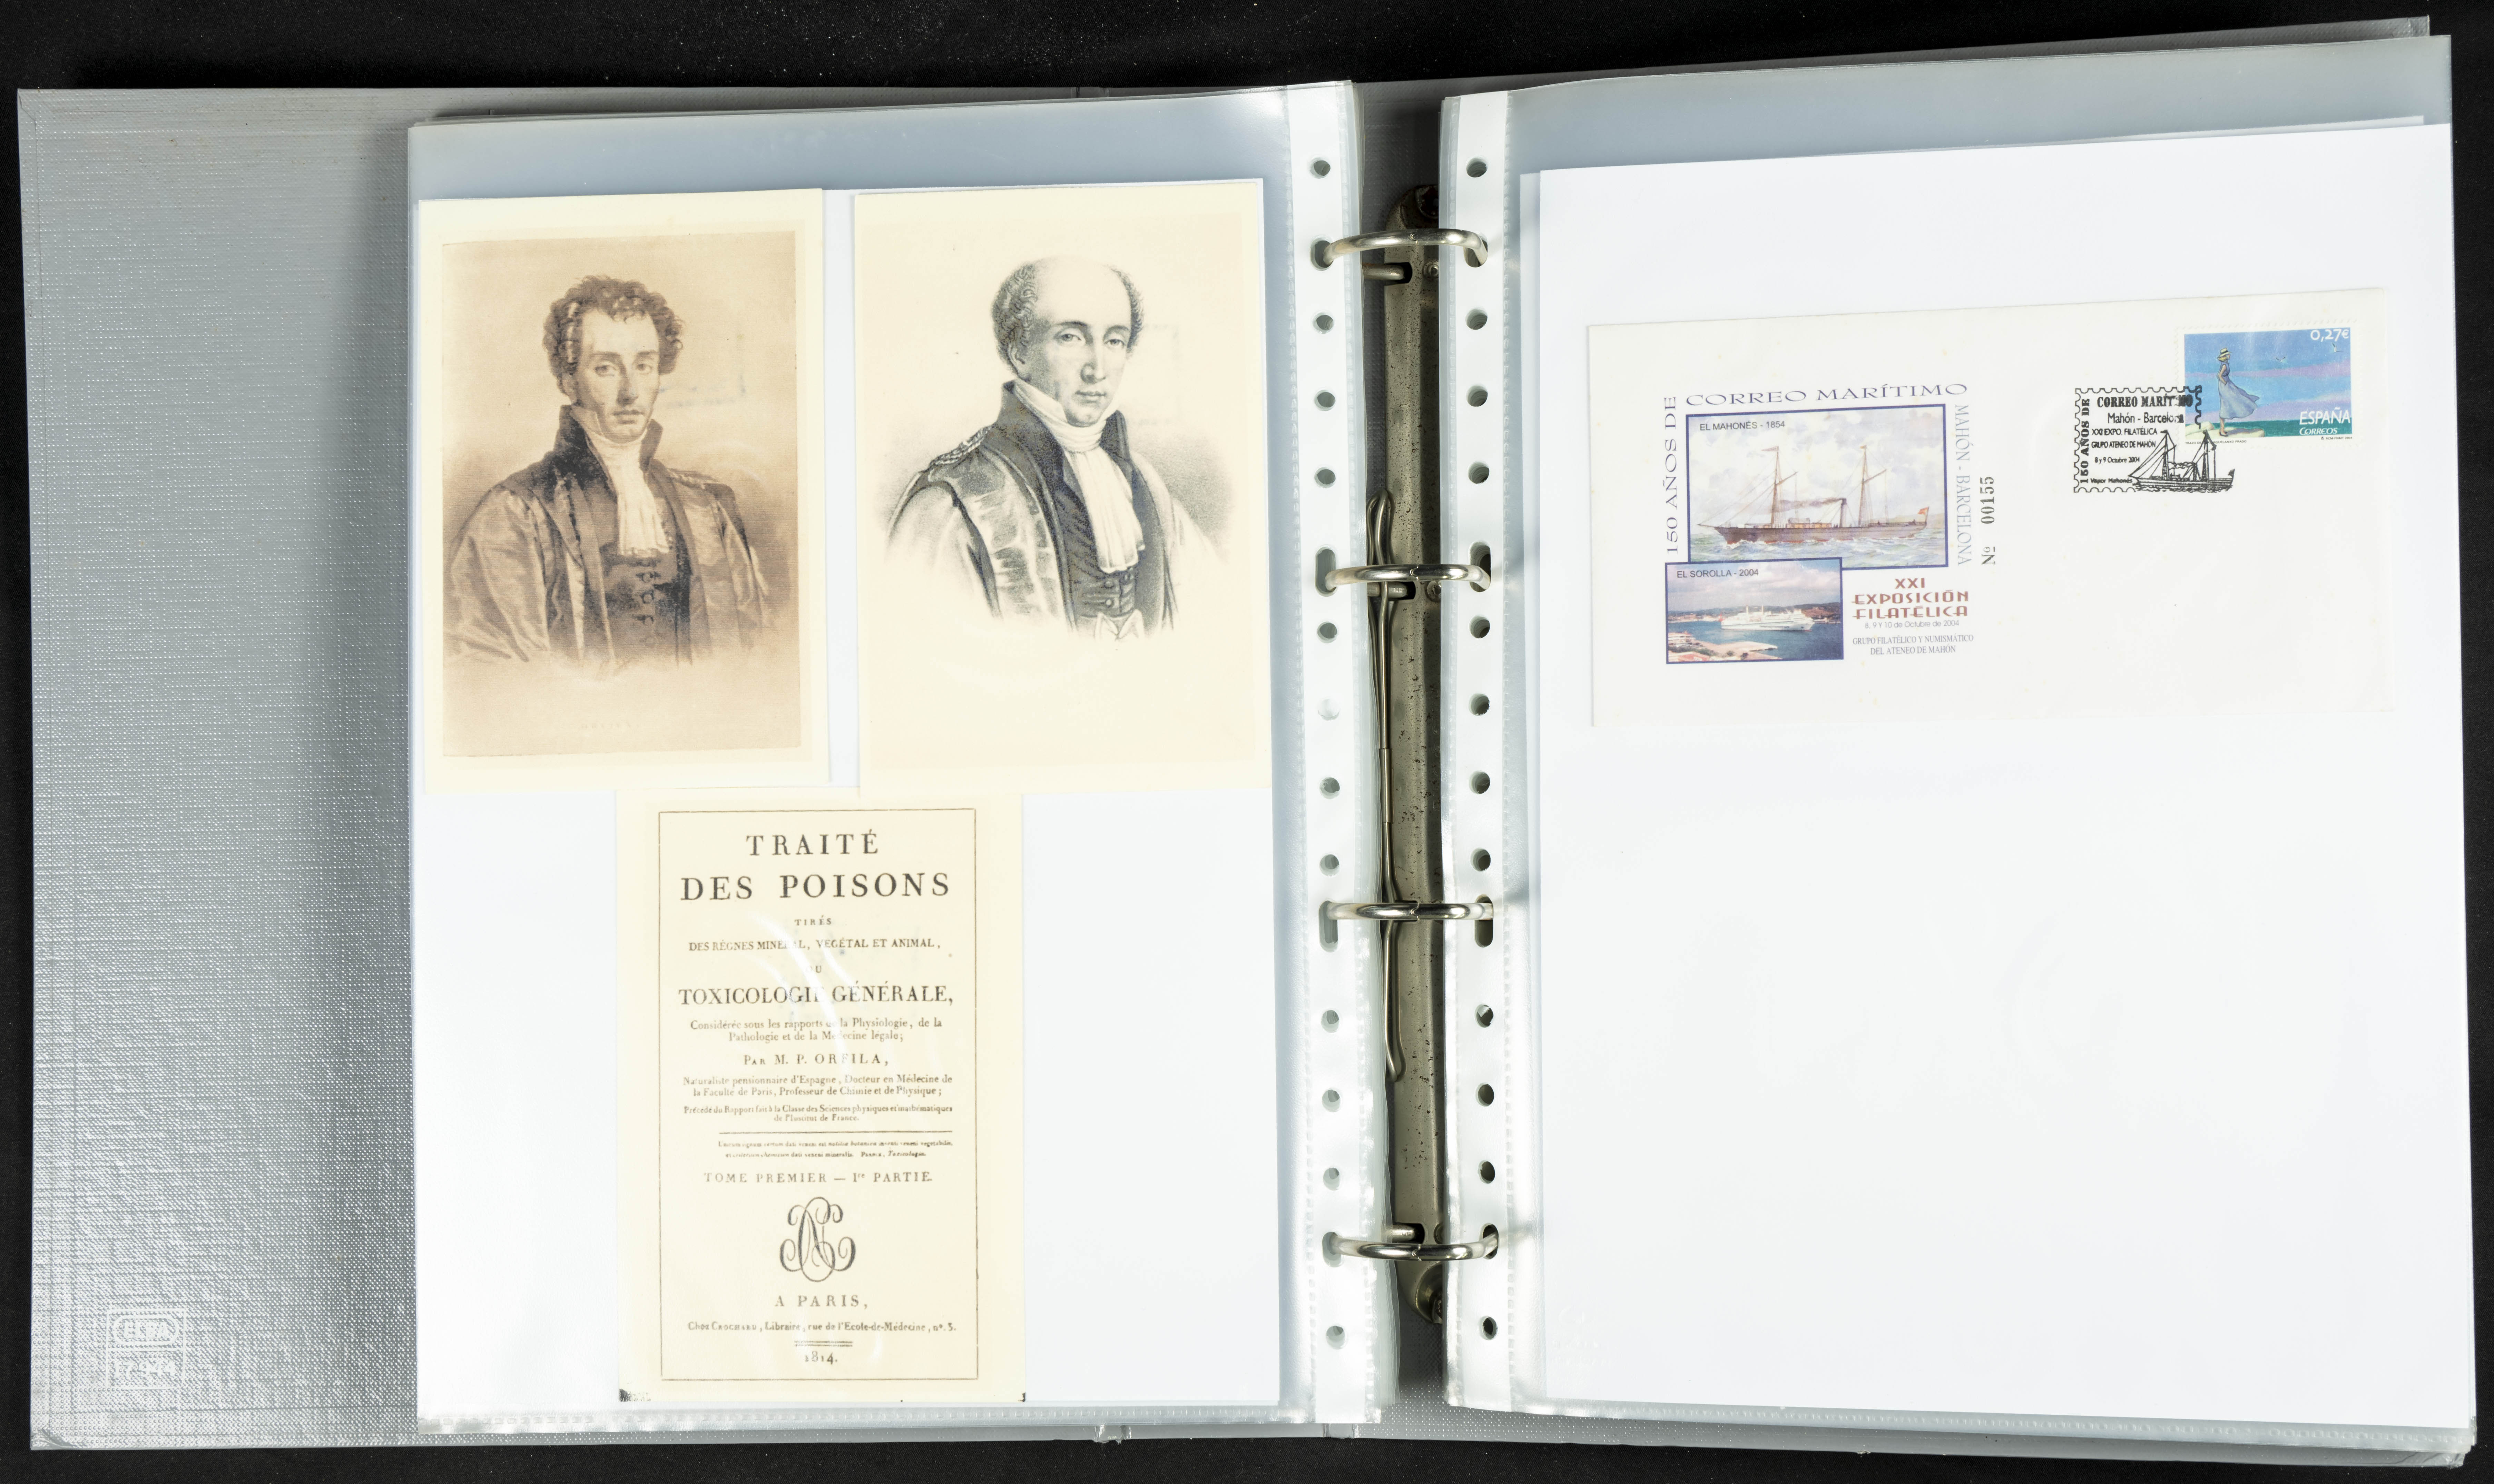 TRAITÉ
DES POISONS
TIRÉS
DES RÈGNES MINÉRAL, VÉGÉTAL ET ANIMAL,
OU
TOXICOLOGIE GÉNÉRALE,
Considérée sous les rapports de la Physiologie, de la
Pathologie et de la Médecine légale;
PAR M. P. ORFILA,
Naturaliste pensionnaire d'Espagne, Docteur en Médecine de
la Faculté de Paris, Professeur de Chimie et de Physique;
Précédé du Rapport fait à la Classe des Sciences physiques et mathématiques
de l'Institut de France.
TOME PREMIER — Ire PARTIE.
A PARIS,
Chez CROCHARD, Libraire, rue de l'Ecole-de-Médecine, nº. 3.
1814.
ELBA
150 AÑOS DE
CORREO MARÍTIMO
MAHÓN - BARCELONA
EL MAHONÉS - 1854
Nº 00155
EL SOROLLA - 2004
XXI
EXPOSICIÓN
FILATÉLICA
8, 9 Y 10 de Octubre de 2004
GRUPO FILATÉLICO Y NUMISMÁTICO
DEL ATENEO DE MAHÓN
0,27€
ESPAÑA
CORREOS
150 AÑOS DE
CORREO MARÍTIMO
Mahón - Barcelona
XXI EXPO. FILATÉLICA
GRUPO ATENEO DE MAHÓN
8 y 9 Octubre 2004
Vapor Mahonés